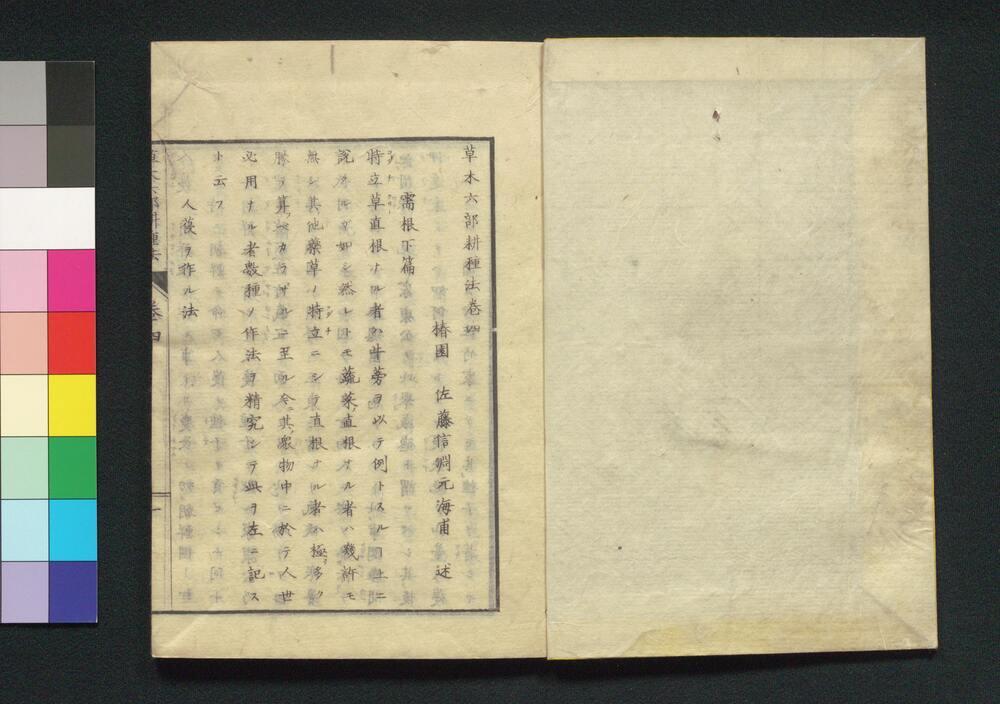 草木六部耕種法巻四
椿園 佐藤信淵元海甫 述
需根下篇
特立草直根ナル者ハ牛蒡ヲ以テ例トスルヿ上ニ
説タルガ如シ然レトモ蔬菜直根ナル者ハ幾許モ
無シ其他薬草ノ特立ニシテ直根ナル者ハ極多ク
勝テ算ベカラザルニ至ル今其衆物中ニ於テ人世
必用ナル者数種ノ作法ヲ精究シテ此ヲ左ニ記ス
ト云フ
人葠ヲ作ル法
草木六部耕種法
巻四
一